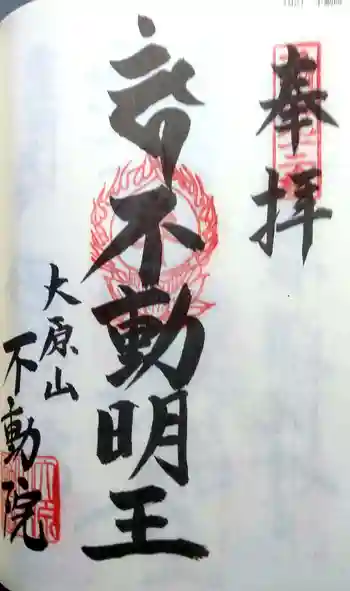 奉拝
不動明王
大原山
不動院